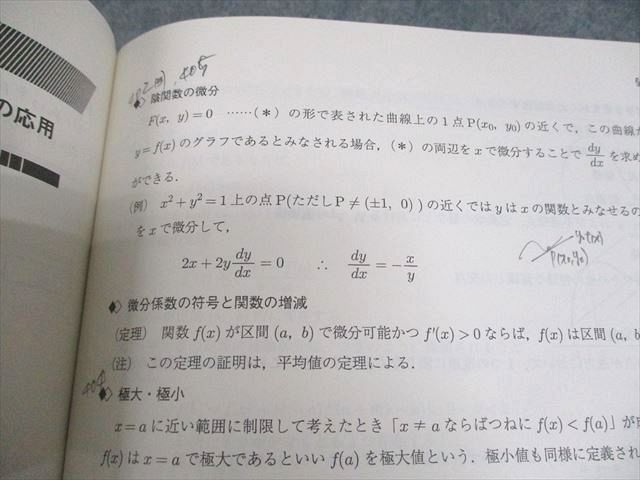 の応用
◆ 陰関数の微分
F(x, y)=0 ……(*) の形で表された曲線上の1点P(x₀, y₀)の近くで，この曲線
y=f(x)のグラフであるとみなされる場合，(*)の両辺をxで微分することで dy/dx を求め
ができる．
(例) x²+y²=1上の点P(ただしP≠(±1, 0))の近くではyはxの関数とみなせるの
をxで微分して，
2x+2y dy/dx=0 ∴ dy/dx=-x/y
P(x₀,y₀)
◆ 微分係数の符号と関数の増減
(定理) 関数 f(x) が区間 (a, b) で微分可能かつ f'(x)>0 ならば，f(x) は区間 (a, b
(注) この定理の証明は，平均値の定理による．
◆ 極大・極小
x=a に近い範囲に制限して考えたとき「x≠a ならばつねに f(x)<f(a)」が
f(x) は x=a で極大であるといい f(a) を極大値という．極小値も同様に定義され